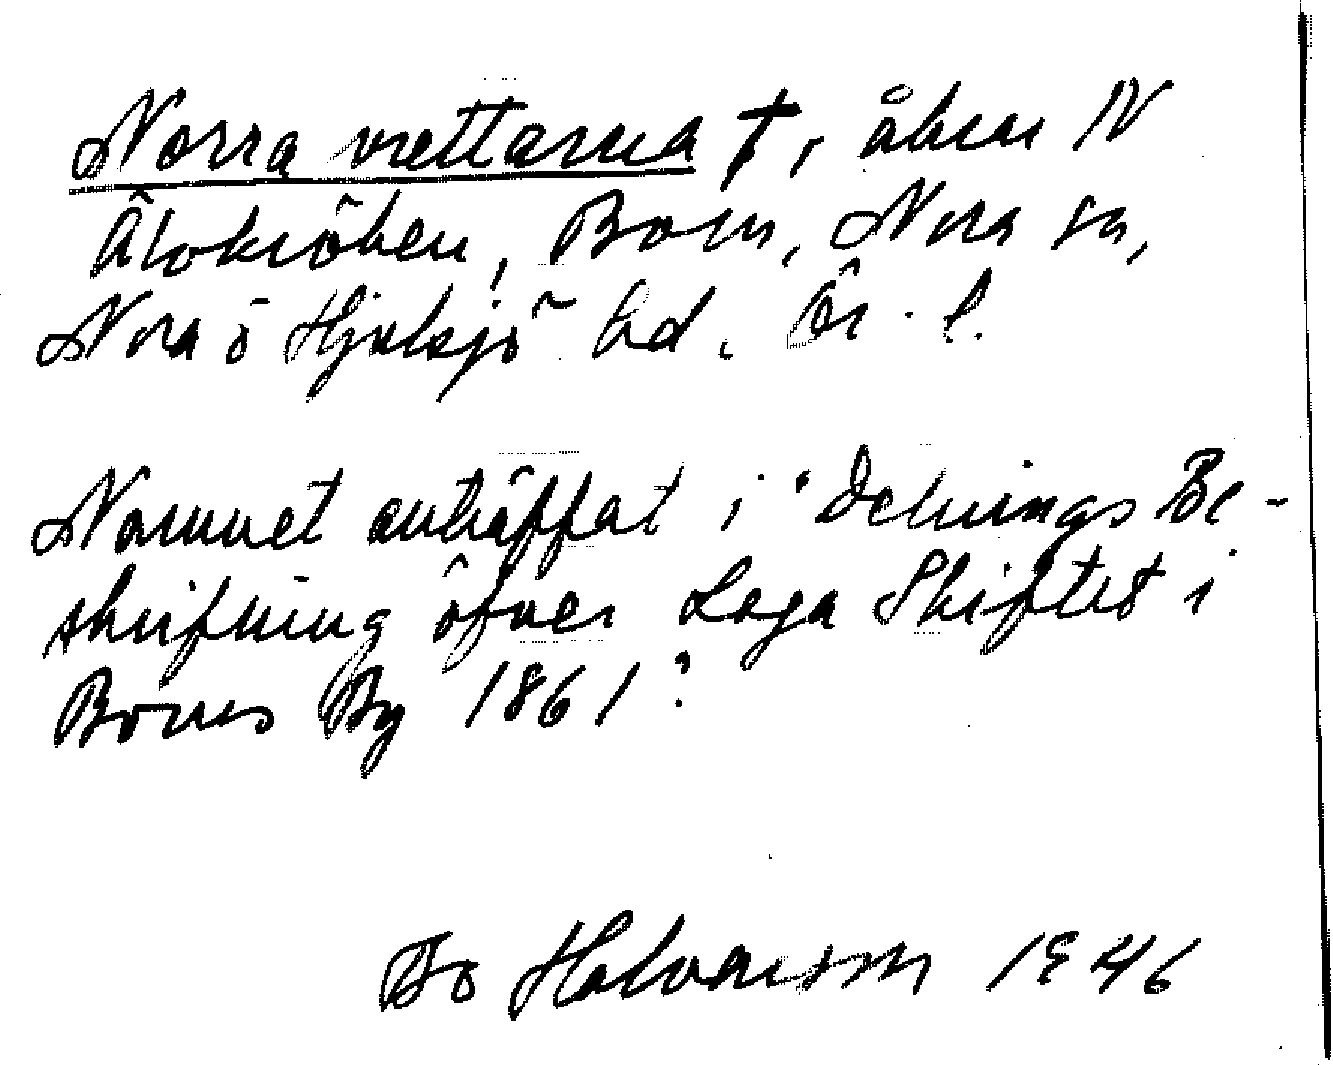 Norra vrettarna †, åkrar N
Älvkröken, Born, Nora sn,
Nora o Hjulsjö hd. Ör. l.
Namnet anträffat i "Delnings Be-
skrifning öfver Laga Skiftet i
Borns By 1861"
Bo Halvarsson 1946